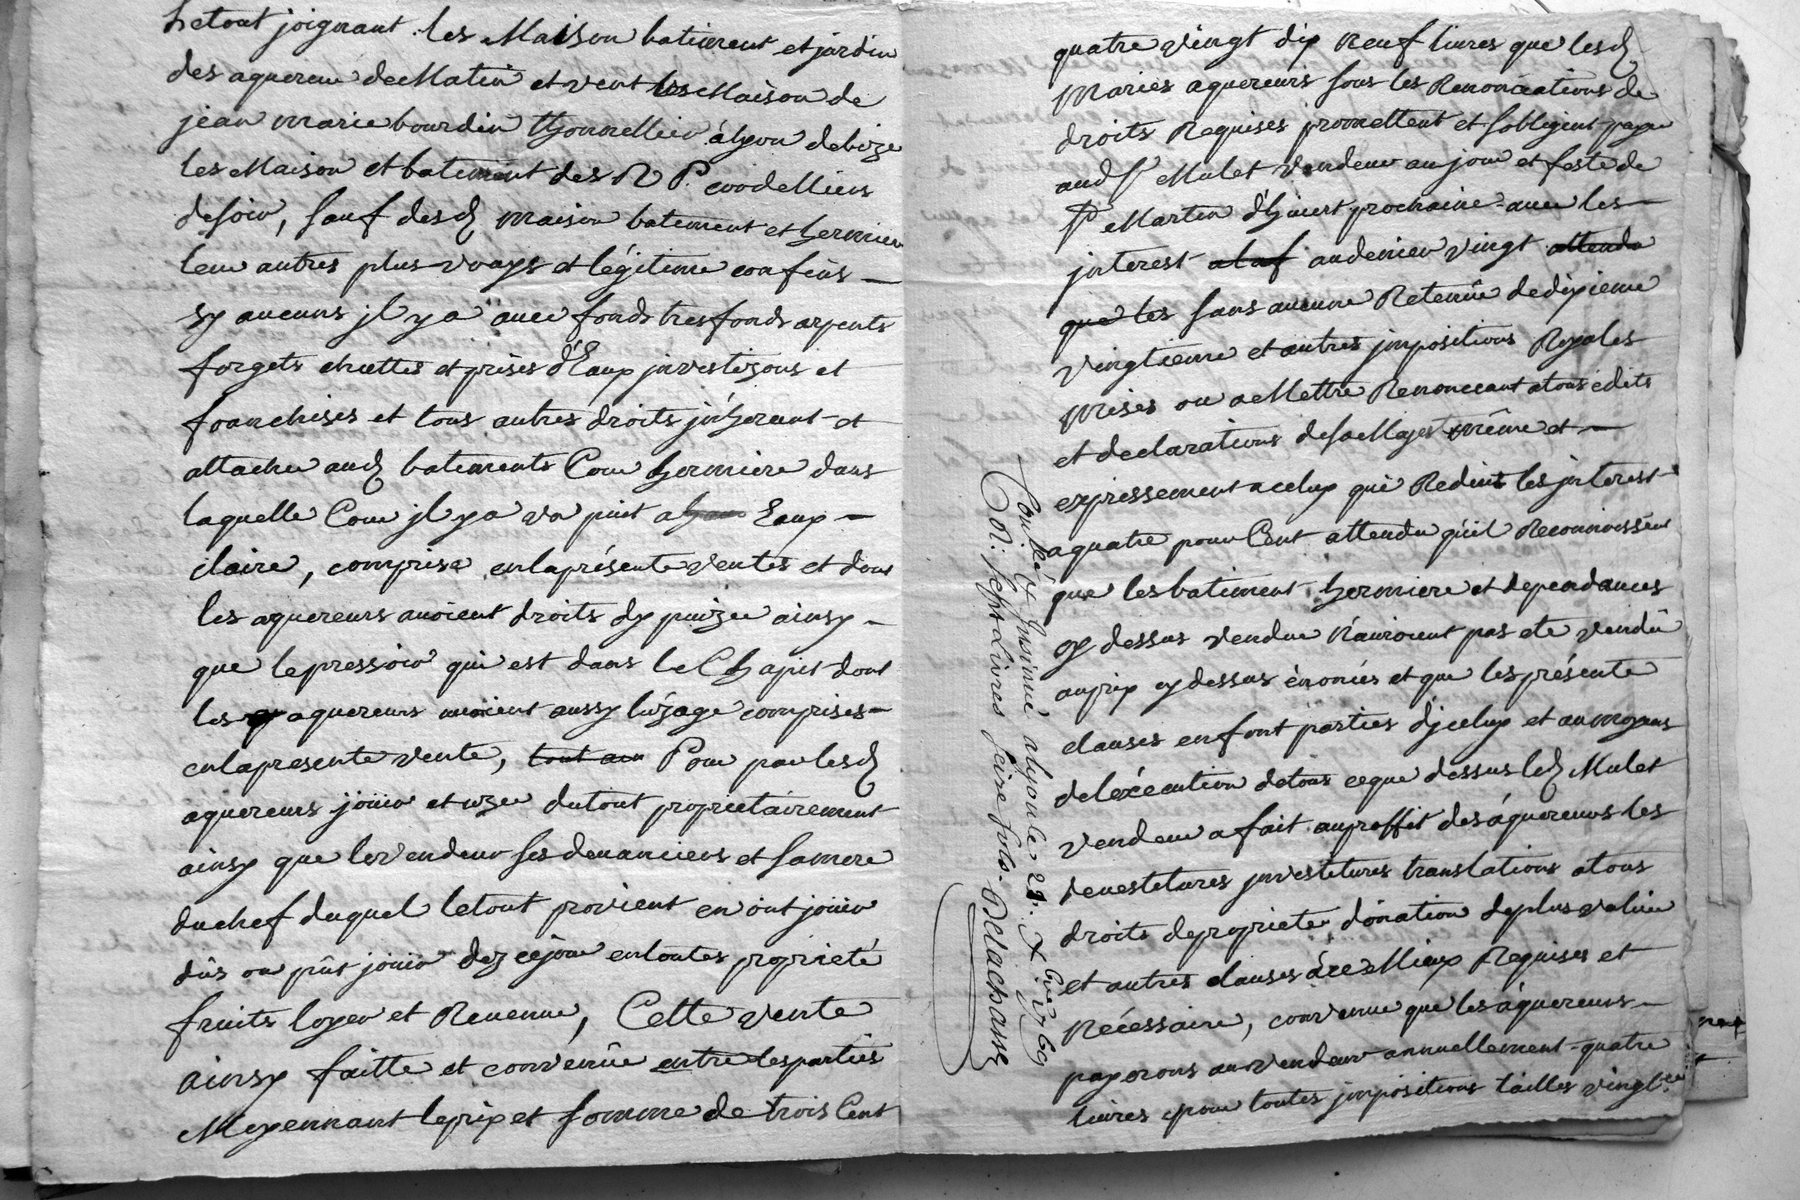 Letout joignant les Maison batiment et jardin
des aquereur de Matin et vent les Maison de
jean marie bourdin thonnellier a lyon debize
les Maison et batiment des R P. Cordelliers
de soir, sauf desd maison batement et hermiere
leur autres plus vrays et légitime confins
sy aucuns jl y a avec fonds tresfonds arpents
forgets chuttes et prises d'Eaux investizons et
franchises et tous autres droits jnherant et
attachez aud batements Cour hermiere dans
laquelle Cour jl y a un puit Eaux
claire, comprise enlaprésente ventes et dont
les aquereurs avoient droits dy puizer ainsy
que lepressoir qui est dans le Chapit dont
les aquereurs avoient aussy luzage comprises
enlapresente vente, tout au Pour par lesd
aquereurs joüir et uzer dutout proprietairement
ainsy que levendeur ses devanciers et samere
duchef duquel letout provient en ont joüir
dûs ou pût joüir dez cejour entoutes proprieté
fruits loyer et Revenue, Cette vente
ainsy faitte et convenüe entre lesparties
Moyennant leprix et somme de trois Cent
quatre vingt dix neuf livres que lesd
Mariés aquereurs sous les Renonciations de
droits Requises promettent et sobligent payer
aud Sr Mulet Vendeur au jour et feste de
St Martin d'hivert prochaine avec les
jnterest audenier vingt attendu
que les sans aucune Retenüe dedixieme
vingtieme et autres jmpositions Royales
Mises ou a Mettre Renonccant atous édits
et declarations desa Majest même et
expressement acelux qui Reduit les jnterest
aquatre pour Cent attendu quil Reconnoissent
que les batiment hermiere et dependances
cy dessus vendue n'auroient pas ete vendü
auprix cy dessus énoncés et que lesprésente
clauses enfont parties djcelux et aumoyens
deléxécution detous ceque dessus led Mulet
vendeur a fait auproffit des áquereurs les
devestitures jnvestitures translations atous
droits depropriete donation deplus valüe
et autres clauses áce Mieux Requises et
Nécessaire, convenue que les áquereurs
payerons au vendeur annuellement quatre
livres pour toutes jmpositions tailles vingt
Controllé & Insinué a lyon le 21. X bre 1769
R. sept Livres seize sols Delachasse